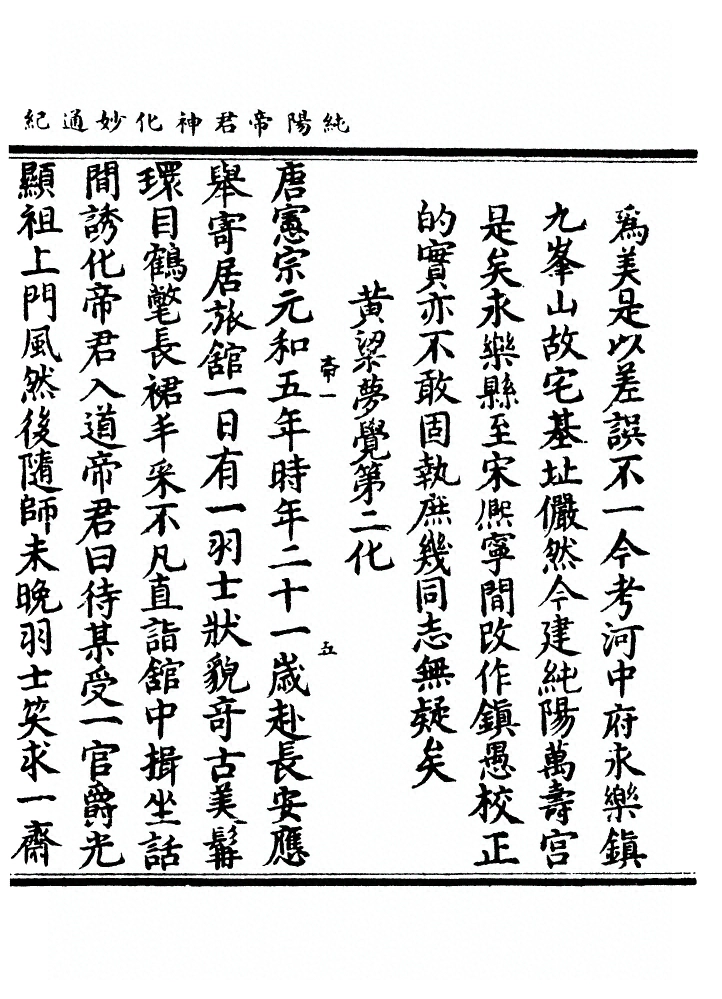 純陽帝君神化妙通紀
爲美是以差誤不一今考河中府永樂鎮
九峯山故宅基址儼然今建純陽萬壽宮
是矣永樂縣至宋熈寧間改作鎮愚校正
的實亦不敢固執庶幾同志無疑矣
黃梁夢覺第二化
帝一
五
唐憲宗元和五年時年二十一歲赴長安應
舉寄居旅舘一日有一羽士狀貌竒古美髯
環目鶴氅長裙丰采不凡直詣舘中揖坐話
間誘化帝君入道帝君曰待某受一官爵光
顯祖上門風然後隨師未晚羽士笑求一齋